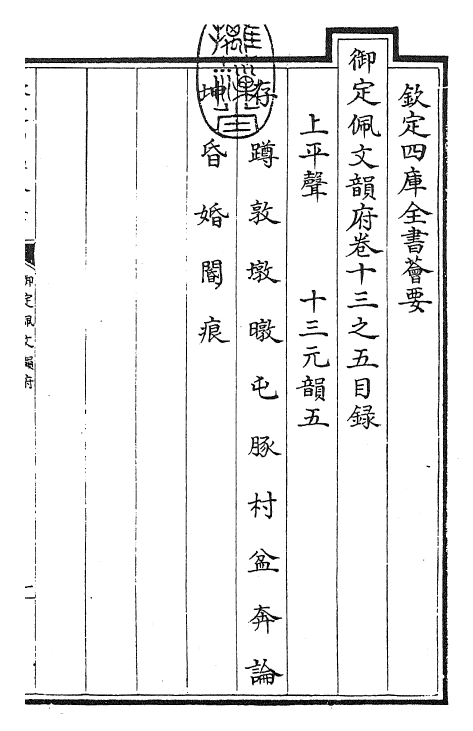 欽定四庫全書薈要
御定佩文韻府卷十三之五目錄
上平聲 十三元韻五
存蹲敦墩暾屯豚村盆奔論
坤昏婚閽痕
御定佩文韻府